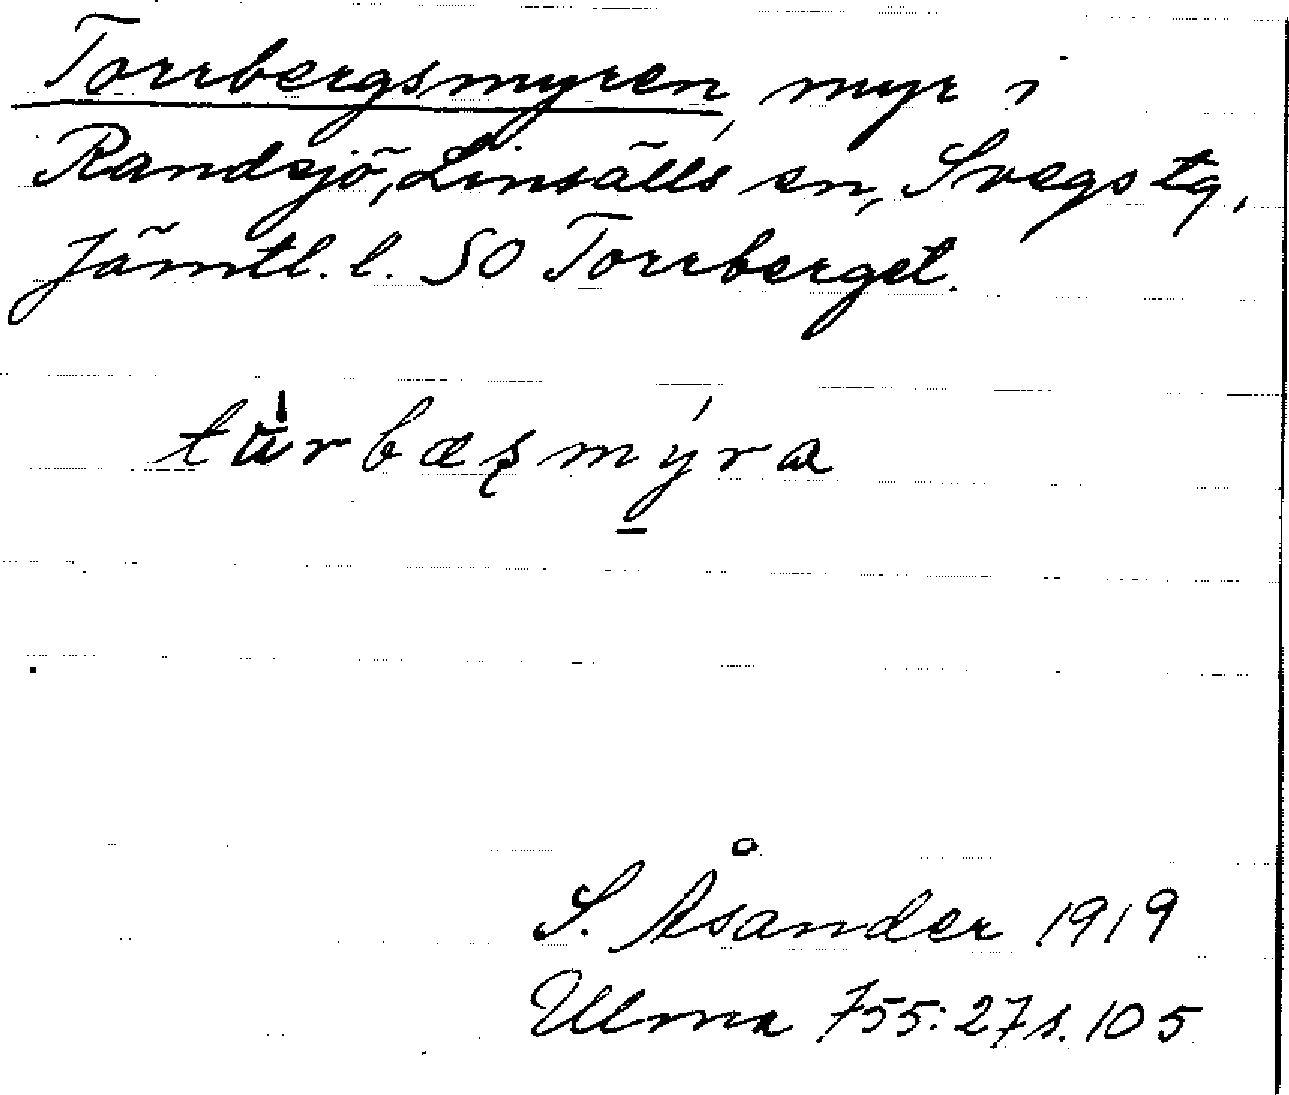 Torrbergsmyren, myr i
Randsjö, Linsälls sn, Svegs tg,
Jämtl. l. SO Torrberget.
tu̇rbæʂmýra
S. Åsander 1919
Ulma 755:27 s. 105